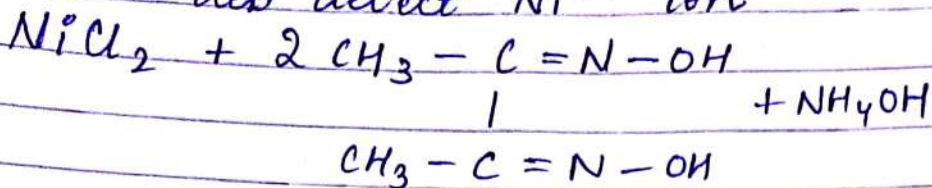 detect Ni ion
NiCl2 + 2 CH3 - C = N - OH
| + NH4OH
CH3 - C = N - OH